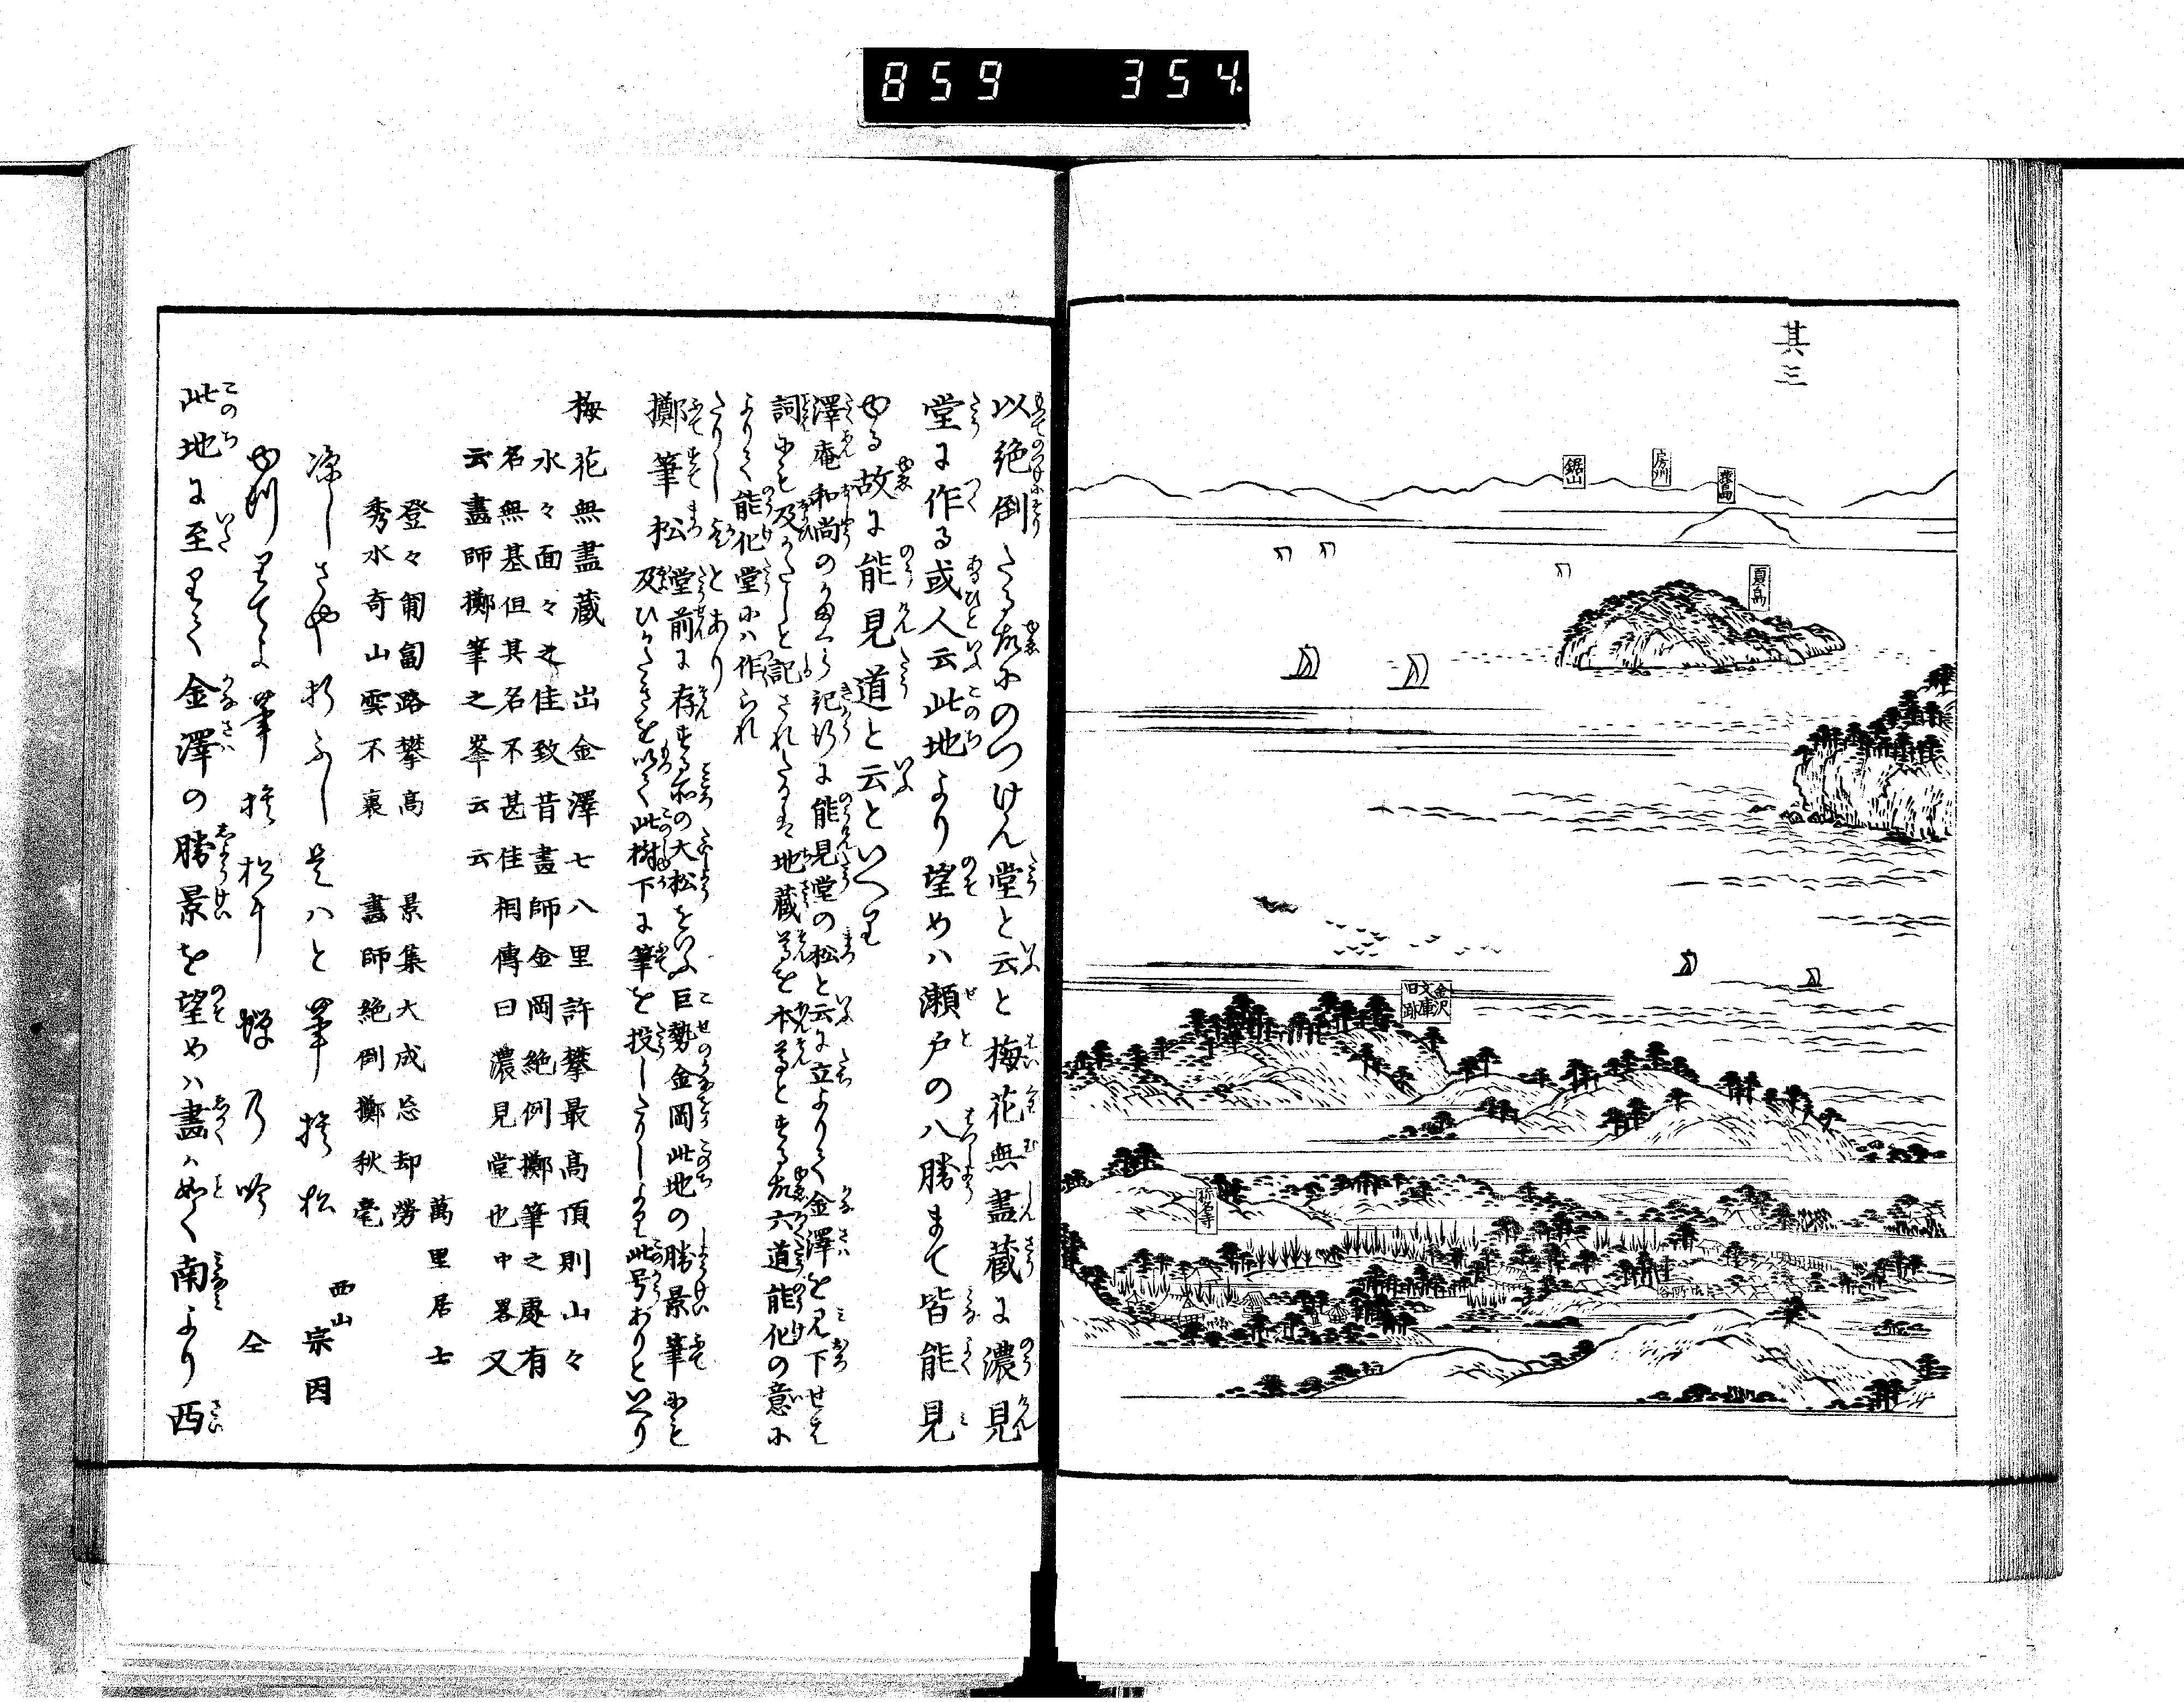 859 354
其三
鋸山
房州
猿島
夏島
金沢
文庫
旧跡
称名寺
以絶倒たる故にのつけん堂と云と梅花無盡蔵に濃見
堂に作る或人云此地より望めハ瀬戸の八勝まて皆能見
ゆる故に能見道と云といへり
澤庵和尚の
記行に能見堂の松と云に立よりて金澤を見下せは
詞にも及かたしと記されたり
地蔵
を本尊とする故六道能化の意に
よりて能化堂にハ作られ
たりし
とあり
擲筆松
堂前に存する所の大松をいふ巨勢金岡此地の勝景筆にも
及ひかたきを以て此樹下に筆を投したりしより此号ありといへり
梅花無盡蔵 出金澤七八里許攀最高頂則山々
水々面々之佳致昔畫師金岡絶倒擲筆之處有
名無基但其名不甚佳相傳曰濃見堂也中畧又
云畫師擲筆之峯云云
萬里居士
登々匍匐路攀高 景集大成忘却勞
秀水奇山雲不裹 畫師絶倒擲秋毫
西山宗因
此地に至りて金澤の勝景を望めハ畫の如く南より西